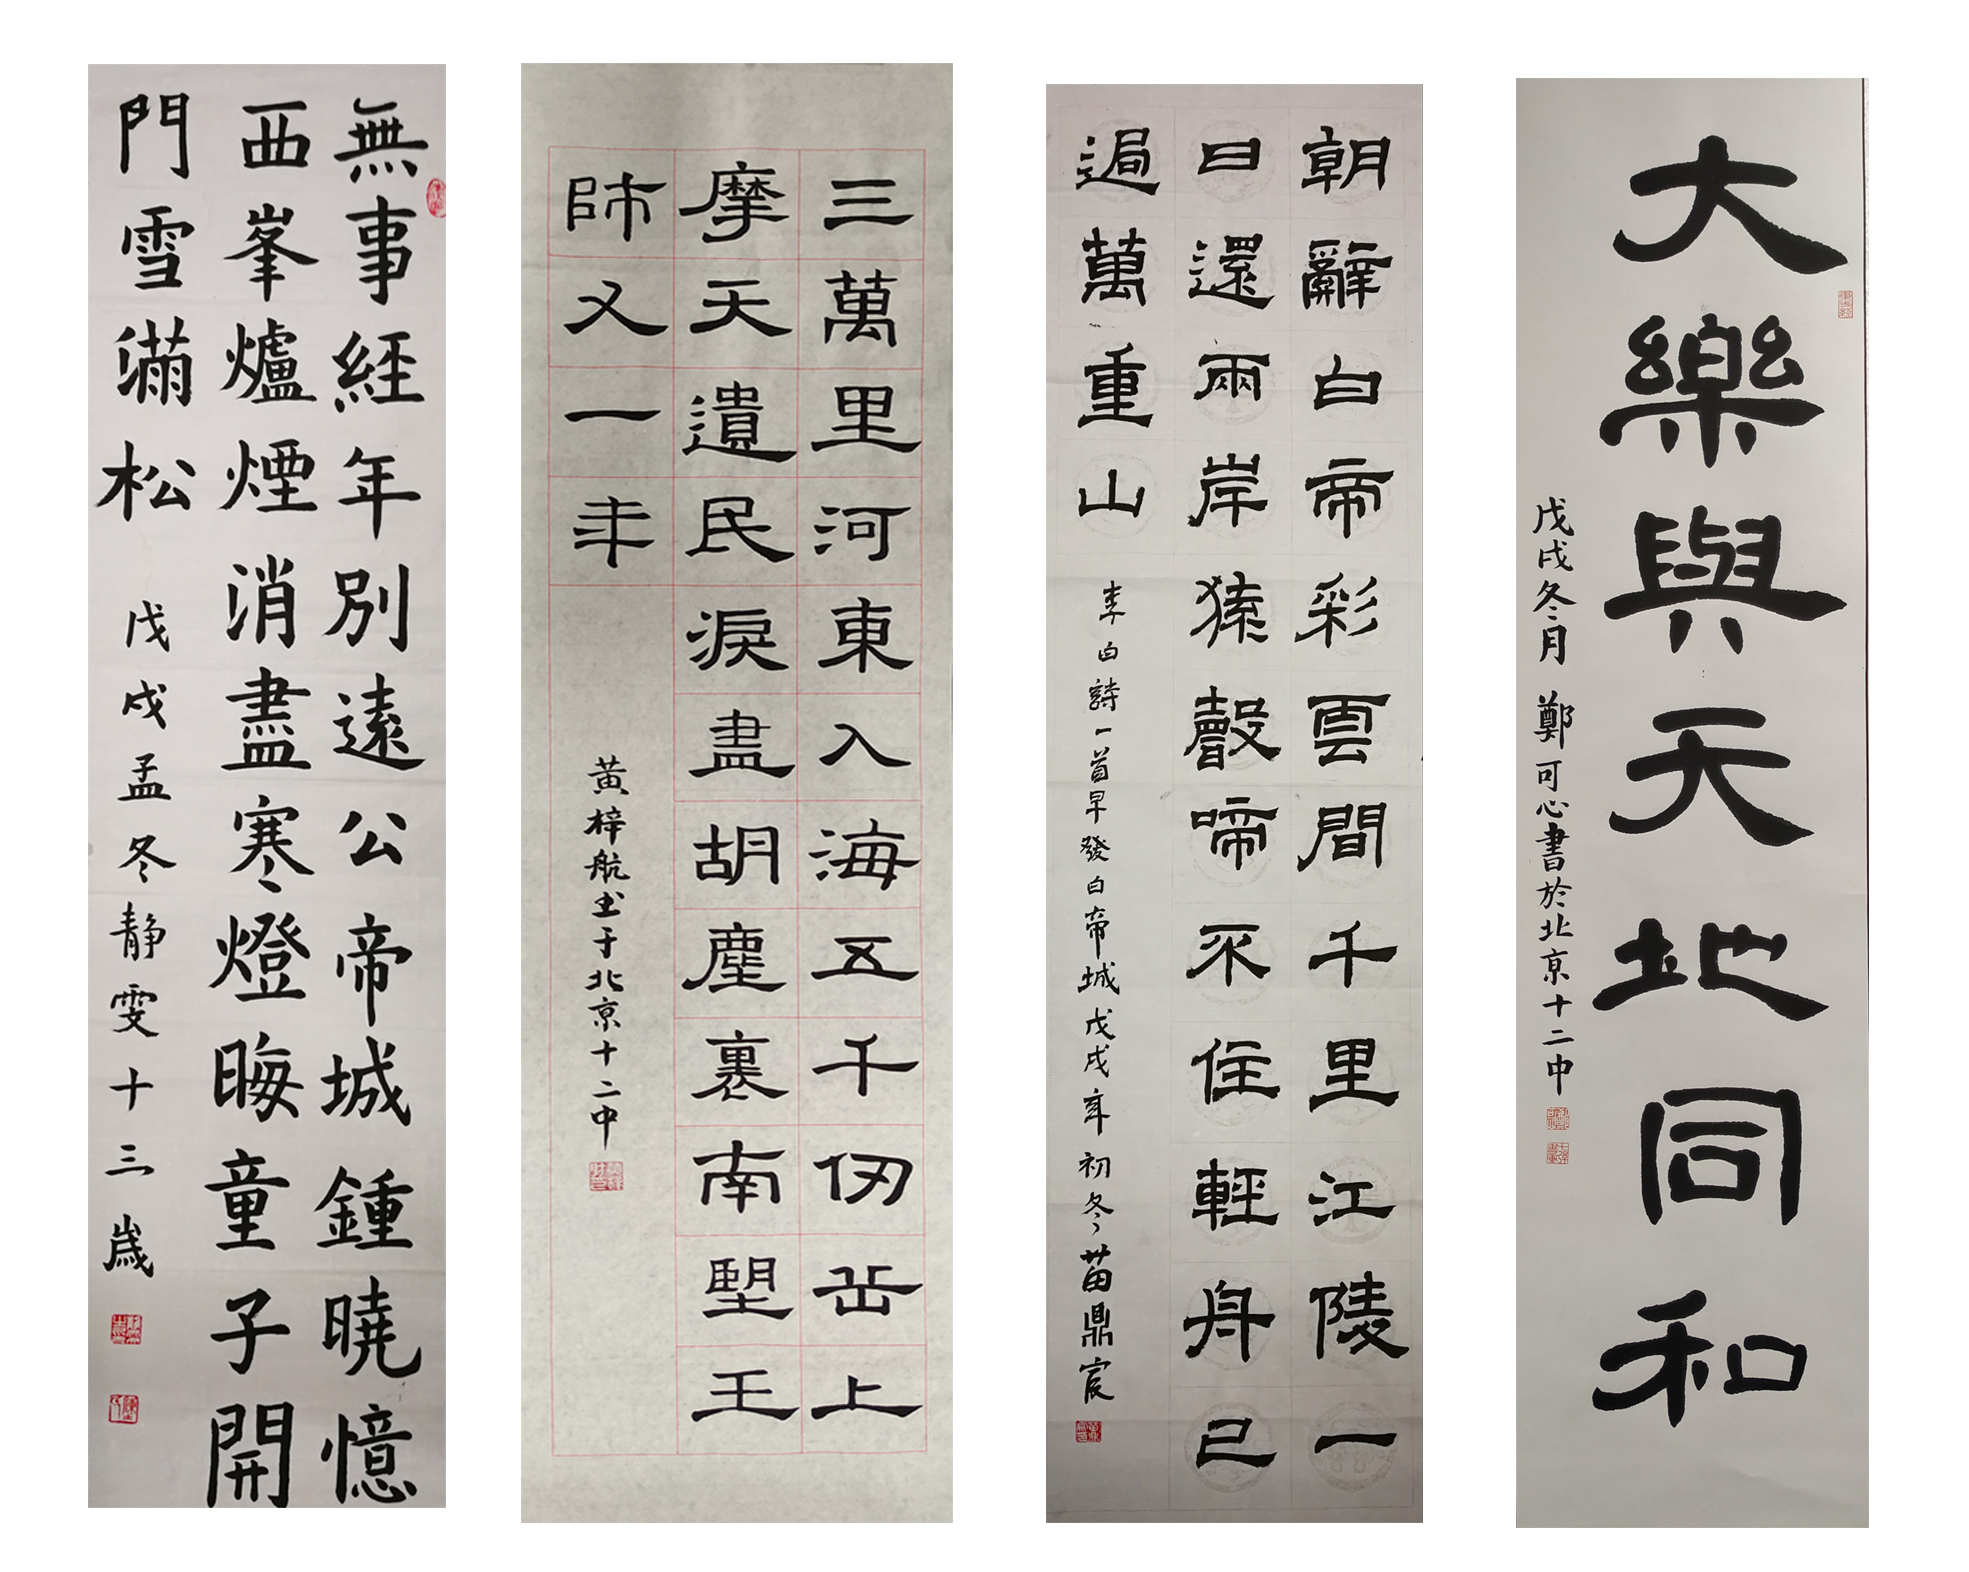 無事經年別遠公帝城鍾曉憶
西峯爐煙消盡寒燈晦童子開
門雪滿松
戊戌孟冬靜雯十三歲
三萬里河東入海五千仞岳上
摩天遺民淚盡胡塵裏南望王
師又一年
黄梓航书于北京十二中
朝辭白帝彩雲間千里江陵一
日還兩岸猿聲啼不住輕舟已
過萬重山
李白詩一首早發白帝城戊戌年初冬苗鼎宸
大樂與天地同和
戊戌冬月 鄭可心書於北京十二中